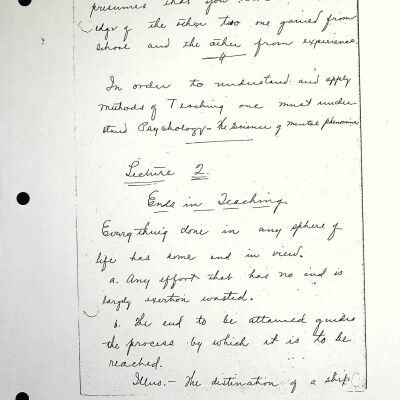 presumes that you
edge of the other two one gained from
school and the other from experience.
In order to understand and apply
methods of Teaching one must under-
stand Psychology - the Science of mental phenomina
Lecture 2.
Ends in Teaching.
Everything done in any sphere of
life has some end in view.
a. Any effort that has no end is
largly exertion wasted.
b. The end to be attained guides
the process by which it is to be
reached.
Illus. - The distination of a ship